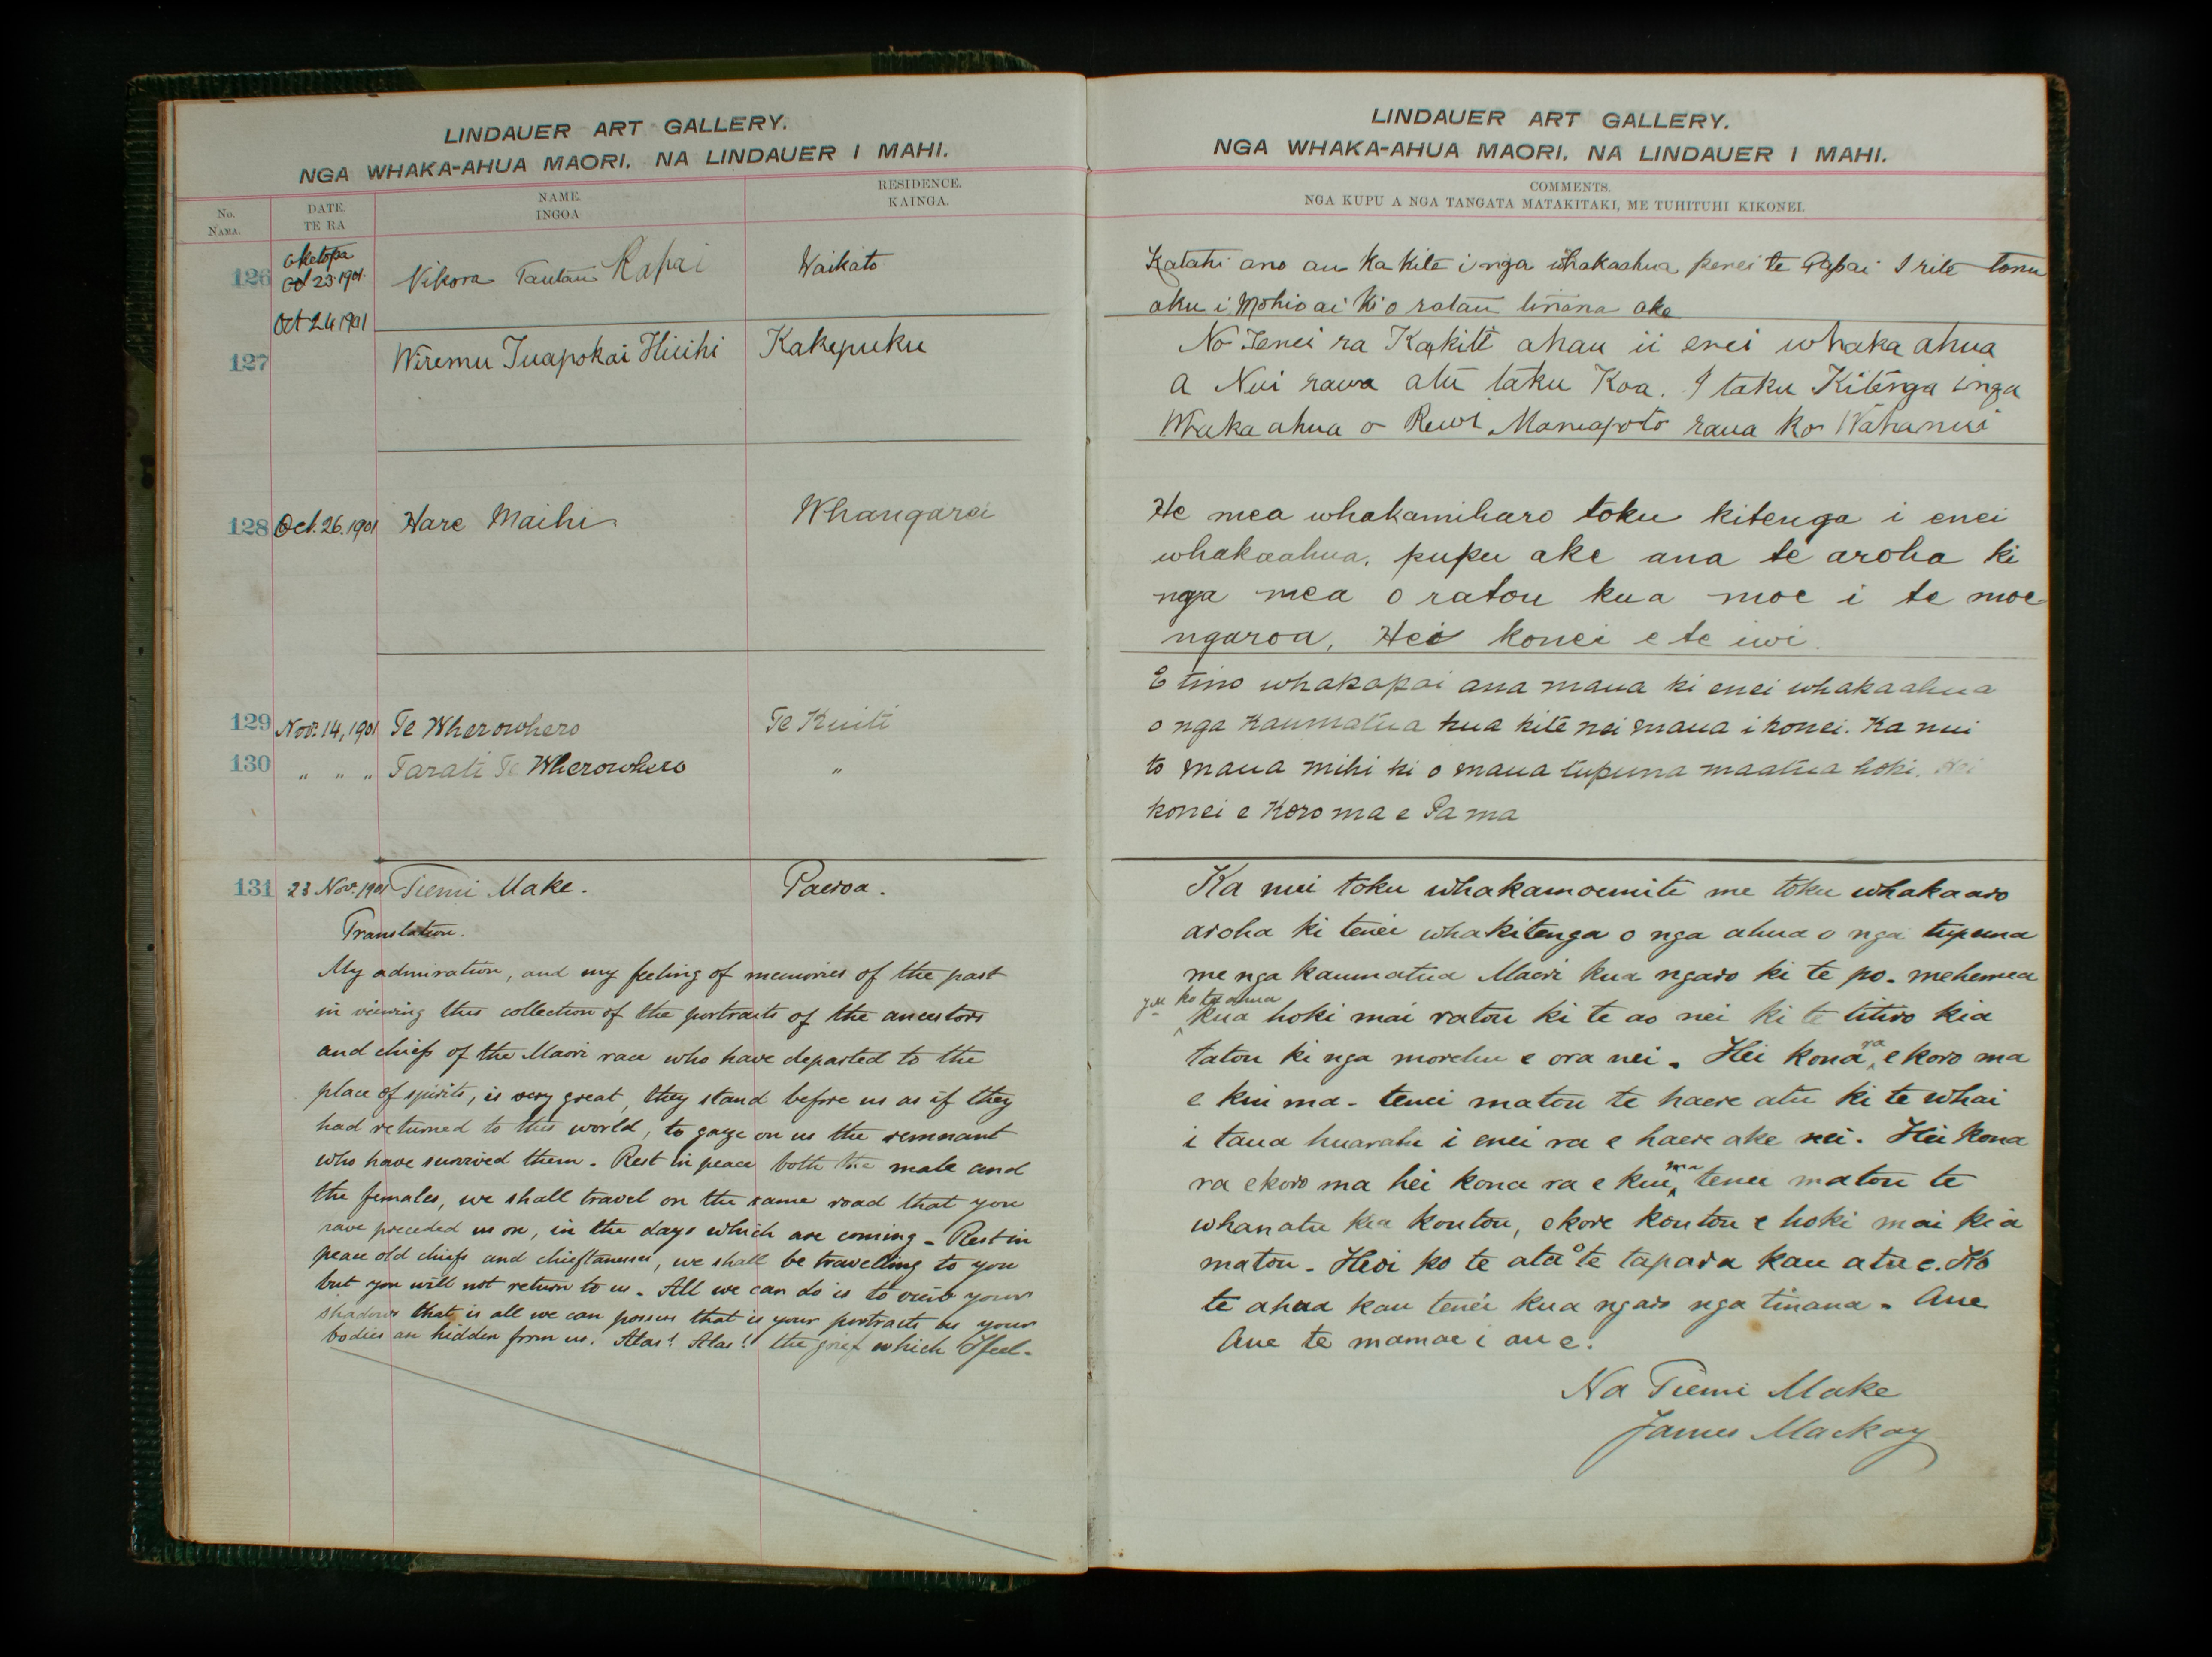 LINDAUER ART GALLERY.
NGA WHAKA-AHUA MAORI, NA LINDAUER I MAHI.
No. NAMA.
DATE. TE RA
NAME. INGOA
RESIDENCE. KAINGA.
126 Oketopa Oct 23. 1901. Nikora Tautau Kapai Waikato
Oct 24 1901
127 Wiremu Tuapokai Hiiihi Kakepuku
128 Oct. 26. 1901 Hare Maihi Whangarei
129 Nov. 14, 1901 Te Wherowhero Te Kuiti
130 " " " Tarati Te Wherowhero "
131 23 Nov. 1901 Tiemi Make. Paeroa.
Translation.
My admiration, and my feeling of memories of the past
in viewing this collection of the portraits of the ancestors
and chiefs of the Maori race who have departed to the
place of spirits, is very great, they stand before us as if they
had returned to this world, to gaze on us the remnant
who have survived them. Rest in peace both the male and
the females, we shall travel on the same road that you
have preceded us on, in the days which are coming - Rest in
peace old chiefs and chieftanesses, we shall be travelling to you
but you will not return to us. All we can do is to view your
shadows that is all we can possess that is your portraits as your
bodies are hidden from us. Alas! Alas! the grief which I feel.
LINDAUER ART GALLERY.
NGA WHAKA-AHUA MAORI, NA LINDAUER I MAHI.
COMMENTS.
NGA KUPU A NGA TANGATA MATAKITAKI, ME TUHITUHI KIKONEI.
Katahi ano au ka kite i nga whakaahua penei te Papai I rite tonu
aku i Mohio ai ki o ratau tinana ake
No Tenei ra Ka kite ahau ii enei whaka ahua
a Nui rawa atu taku Koa. I taku Kitenga i nga
Whaka ahua o Rewi Maniapoto raua ko Wahanui
He mea whakamiharo toku kitenga i enei
whakaahua, pupu ake ana te aroha ki
nga mea o ratou kua moe i te moe
ngaroa, Hei konei e te iwi.
E tino whakapai ana maua ki enei whakaahua
o nga Kaumatua kua kite nei maua i konei. Ka nui
to maua mihi ki o maua tupuna maatua hoki. Hei
konei e Koro ma e Pa ma
Ka nui toku whakamoemiti me toku whakaaro
aroha ki tenei whakitenga o nga ahua o nga tupuna
me nga kaumatua Maori kua ngaro ki te po. mehemea
ko te ahua
kua hoki mai ratou ki te ao nei ki te titiro kia
tatou ki nga morehu e ora nei. Hei kona ra e koro ma
e kui ma - tenei matou te haere atu ki te whai
i taua huarahi i enei ra e haere ake nei. Hei kona
ra e koro ma hei kona ra e kui ma tenei matou te
whanatu kia koutou, ekore koutou e hoki mai kia
matou. Heoi ko te ata o te tapara kau atu e. Ko
te ahua kau tenei kua ngaro nga tinana. Aue
Aue te mamae i au e.
Na Tiemi Make
James Mackay